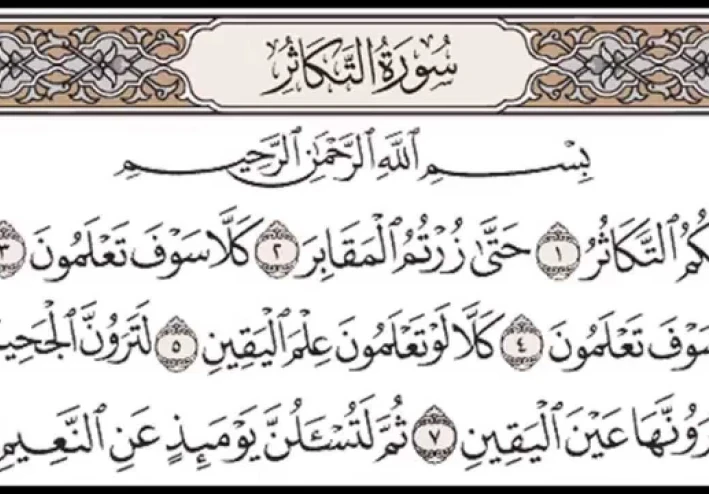 سُورَةُ التَّكَاثُرِ
بِسْمِ ٱللَّهِ ٱلرَّحْمَٰنِ ٱلرَّحِيمِ
كُمُ ٱلتَّكَاثُرُ ١ حَتَّىٰ زُرْتُمُ ٱلْمَقَابِرَ ٢ كَلَّا سَوْفَ تَعْلَمُونَ ٣
سَوْفَ تَعْلَمُونَ ٤ كَلَّا لَوْ تَعْلَمُونَ عِلْمَ ٱلْيَقِينِ ٥ لَتَرَوُنَّ ٱلْجَحِي
رَوُنَّهَا عَيْنَ ٱلْيَقِينِ ٧ ثُمَّ لَتُسْـَٔلُنَّ يَوْمَئِذٍ عَنِ ٱلنَّعِيمِ